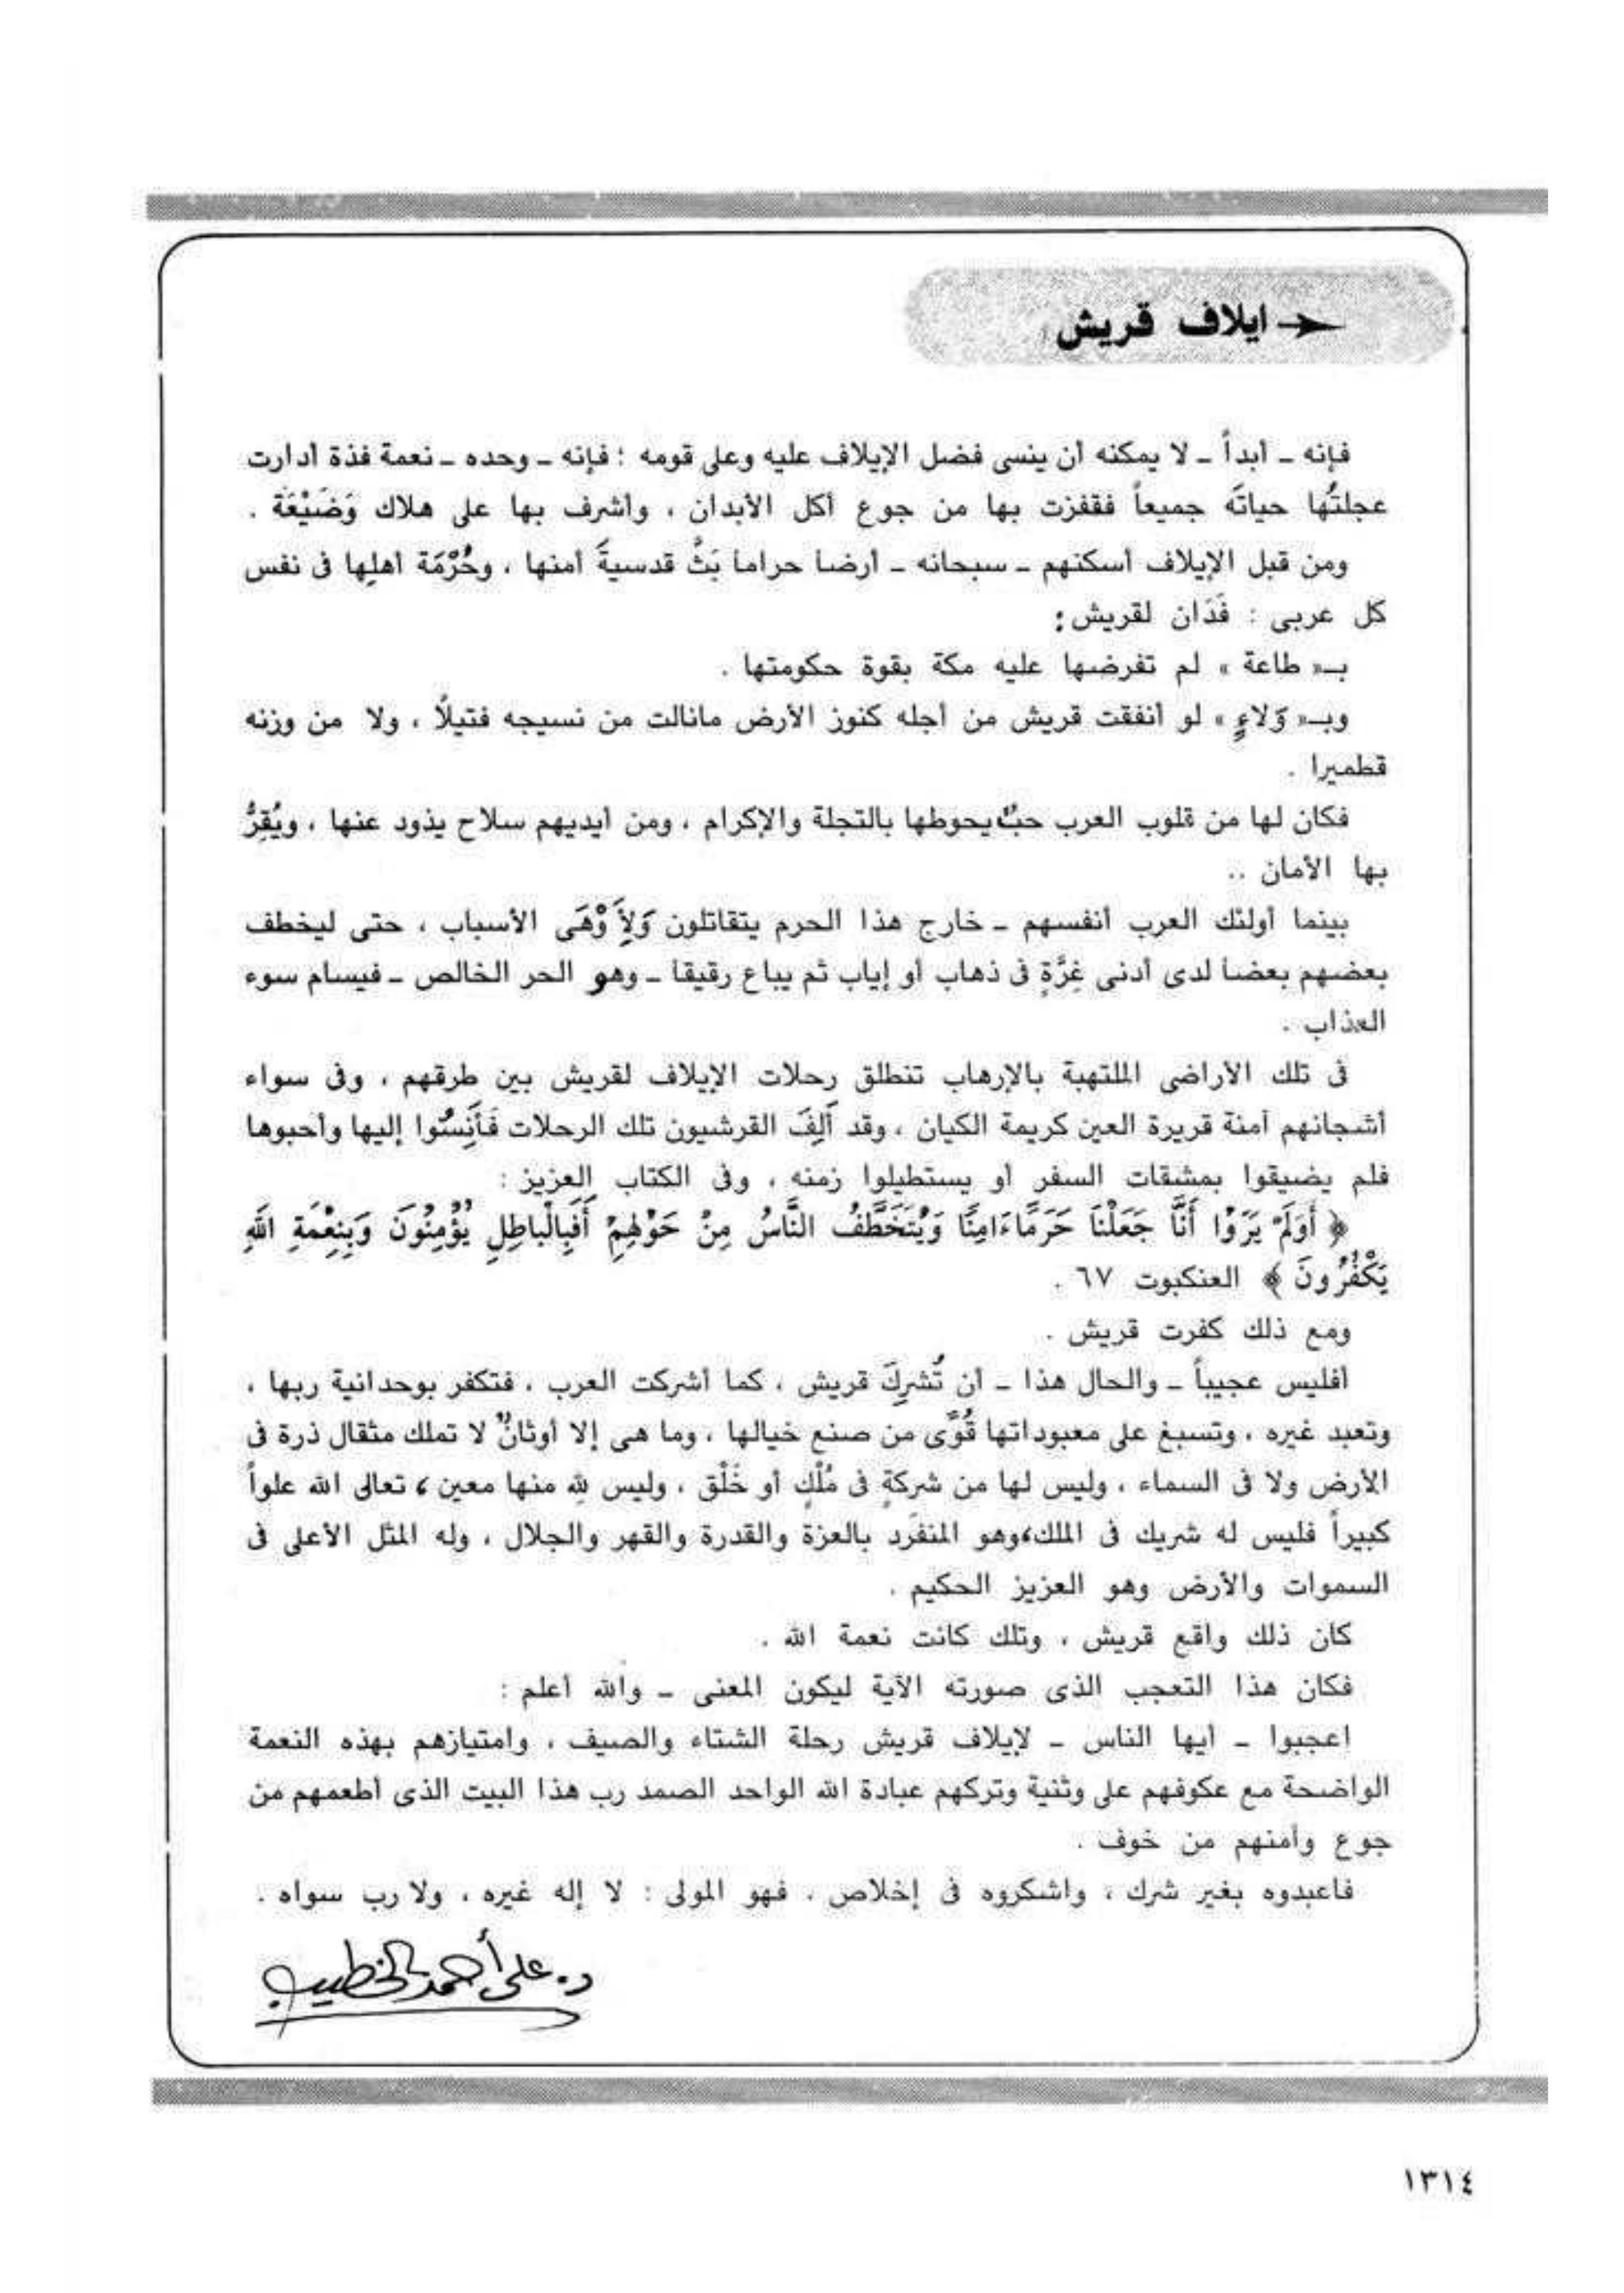 ايلاف قريش
فإنه ـ أبداً ـ لا يمكنه أن ينسى فضل الإيلاف عليه وعلى قومه ؛ فإنه ـ وحده ـ نعمة فذة أدارت
عجلتُها حياتَه جميعاً فقفزت بها من جوع أكل الأبدان ، وأشرف بها على هلاك وَضَيْعَة .
ومن قبل الإيلاف أسكنهم ـ سبحانه ـ أرضا حراما بَثَّ قدسيةَ أمنها ، وحُرْمَة أهلِها فى نفس
كل عربى : فَدَان لقريش :
بـ« طاعة » لم تفرضها عليه مكة بقوة حكومتها .
وبـ« وَلاءٍ » لو أنفقت قريش من أجله كنوز الأرض مانالت من نسيجه فتيلاً ، ولا من وزنه
قطميرا .
فكان لها من قلوب العرب حبٌّ يحوطها بالتجلة والإكرام ، ومن أيديهم سلاح يذود عنها ، ويُقِرُّ
بها الأمان ..
بينما أولئك العرب أنفسهم ـ خارج هذا الحرم يتقاتلون وَلِأَوْهَى الأسباب ، حتى ليخطف
بعضهم بعضا لدى أدنى غِرَّةٍ فى ذهاب أو إياب ثم يباع رقيقا ـ وهو الحر الخالص ـ فيسام سوء
العذاب .
فى تلك الأراضى الملتهبة بالإرهاب تنطلق رحلات الإيلاف لقريش بين طرقهم ، وفى سواء
أشجانهم آمنة قريرة العين كريمة الكيان ، وقد أَلِفَ القرشيون تلك الرحلات فَأَنِسُوا إليها وأحبوها
فلم يضيقوا بمشقات السفر أو يستطيلوا زمنه ، وفى الكتاب العزيز :
﴿ أَوَلَمْ يَرَوْا أَنَّا جَعَلْنَا حَرَمًا ءَامِنًا وَيُتَخَطَّفُ النَّاسُ مِنْ حَوْلِهِمْ أَفَبِالْبَاطِلِ يُؤْمِنُونَ وَبِنِعْمَةِ اللَّهِ
يَكْفُرُونَ ﴾ العنكبوت ٦٧ .
ومع ذلك كفرت قريش .
أفليس عجيباً ـ والحال هذا ـ أن تُشرِكَ قريش ، كما أشركت العرب ، فتكفر بوحدانية ربها ،
وتعبد غيره ، وتسبغ على معبوداتها قُوًى من صنع خيالها ، وما هى إلا أوثانٌ لا تملك مثقال ذرة فى
الأرض ولا فى السماء ، وليس لها من شركةٍ فى مُلْكٍ أو خَلْق ، وليس لله منها معين ، تعالى الله علواً
كبيراً فليس له شريك فى الملك، وهو المنفَرد بالعزة والقدرة والقهر والجلال ، وله المثل الأعلى فى
السموات والأرض وهو العزيز الحكيم .
كان ذلك واقع قريش ، وتلك كانت نعمة الله .
فكان هذا التعجب الذى صورته الآية ليكون المعنى ـ والله أعلم :
اعجبوا ـ أيها الناس ـ لإيلاف قريش رحلة الشتاء والصيف ، وامتيازهم بهذه النعمة
الواضحة مع عكوفهم على وثنية وتركهم عبادة الله الواحد الصمد رب هذا البيت الذى أطعمهم من
جوع وآمنهم من خوف .
فاعبدوه بغير شرك ، واشكروه فى إخلاص ، فهو المولى : لا إله غيره ، ولا رب سواه .
د. على أحمد الخطيب
١٣١٤